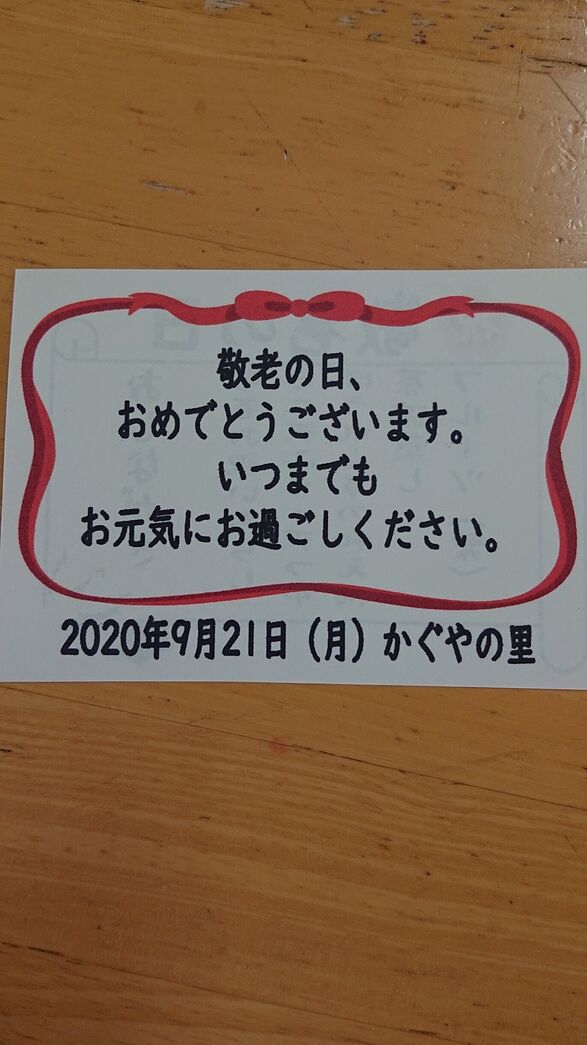 敬老の日、
おめでとうございます。
いつまでも
お元気にお過ごしください。
2020年9月21日（月）かぐやの里